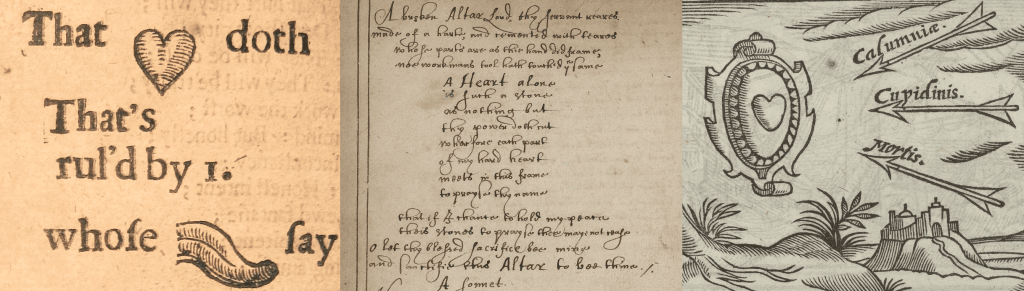 That doth
That's
rul'd by 1.
whoſe ſay
A broken Altar Lord, thy servant reares
made of a hart, and cemented with teares
whose parts are as thie hand did frame,
noe workmans tool hath touched yͤ same
A Heart alone
is such a stone
as nothing but
thy power doth cut
wherfore each part
of my hard heart
meets in this frame
to prayse thy name
that if I chance to hold my peace
theis stones to prayse thee may not cease
o let thy blessed sacrifice bee mine
and sanctifie this Altar to bee thine.
A sonnet.
Calumniæ.
Cupidinis.
Mortis.